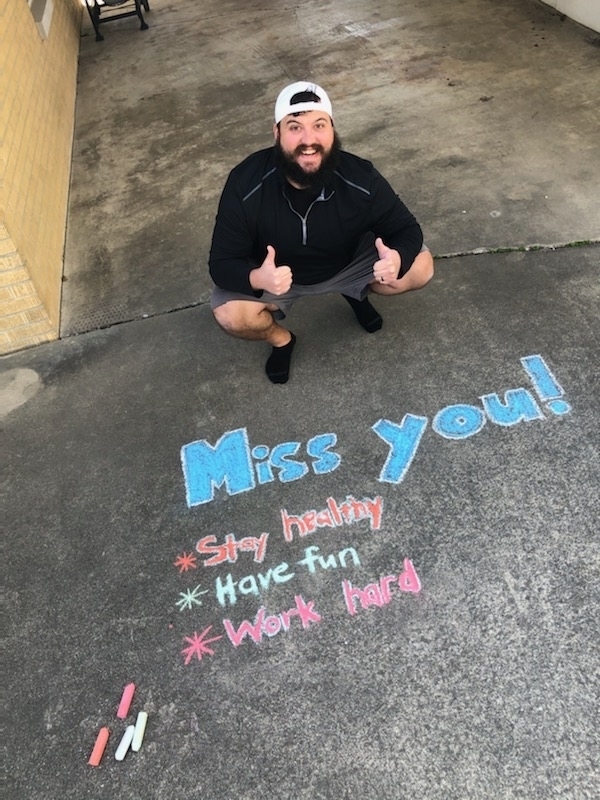 Miss you!
* Stay healthy
* Have fun
* Work hard